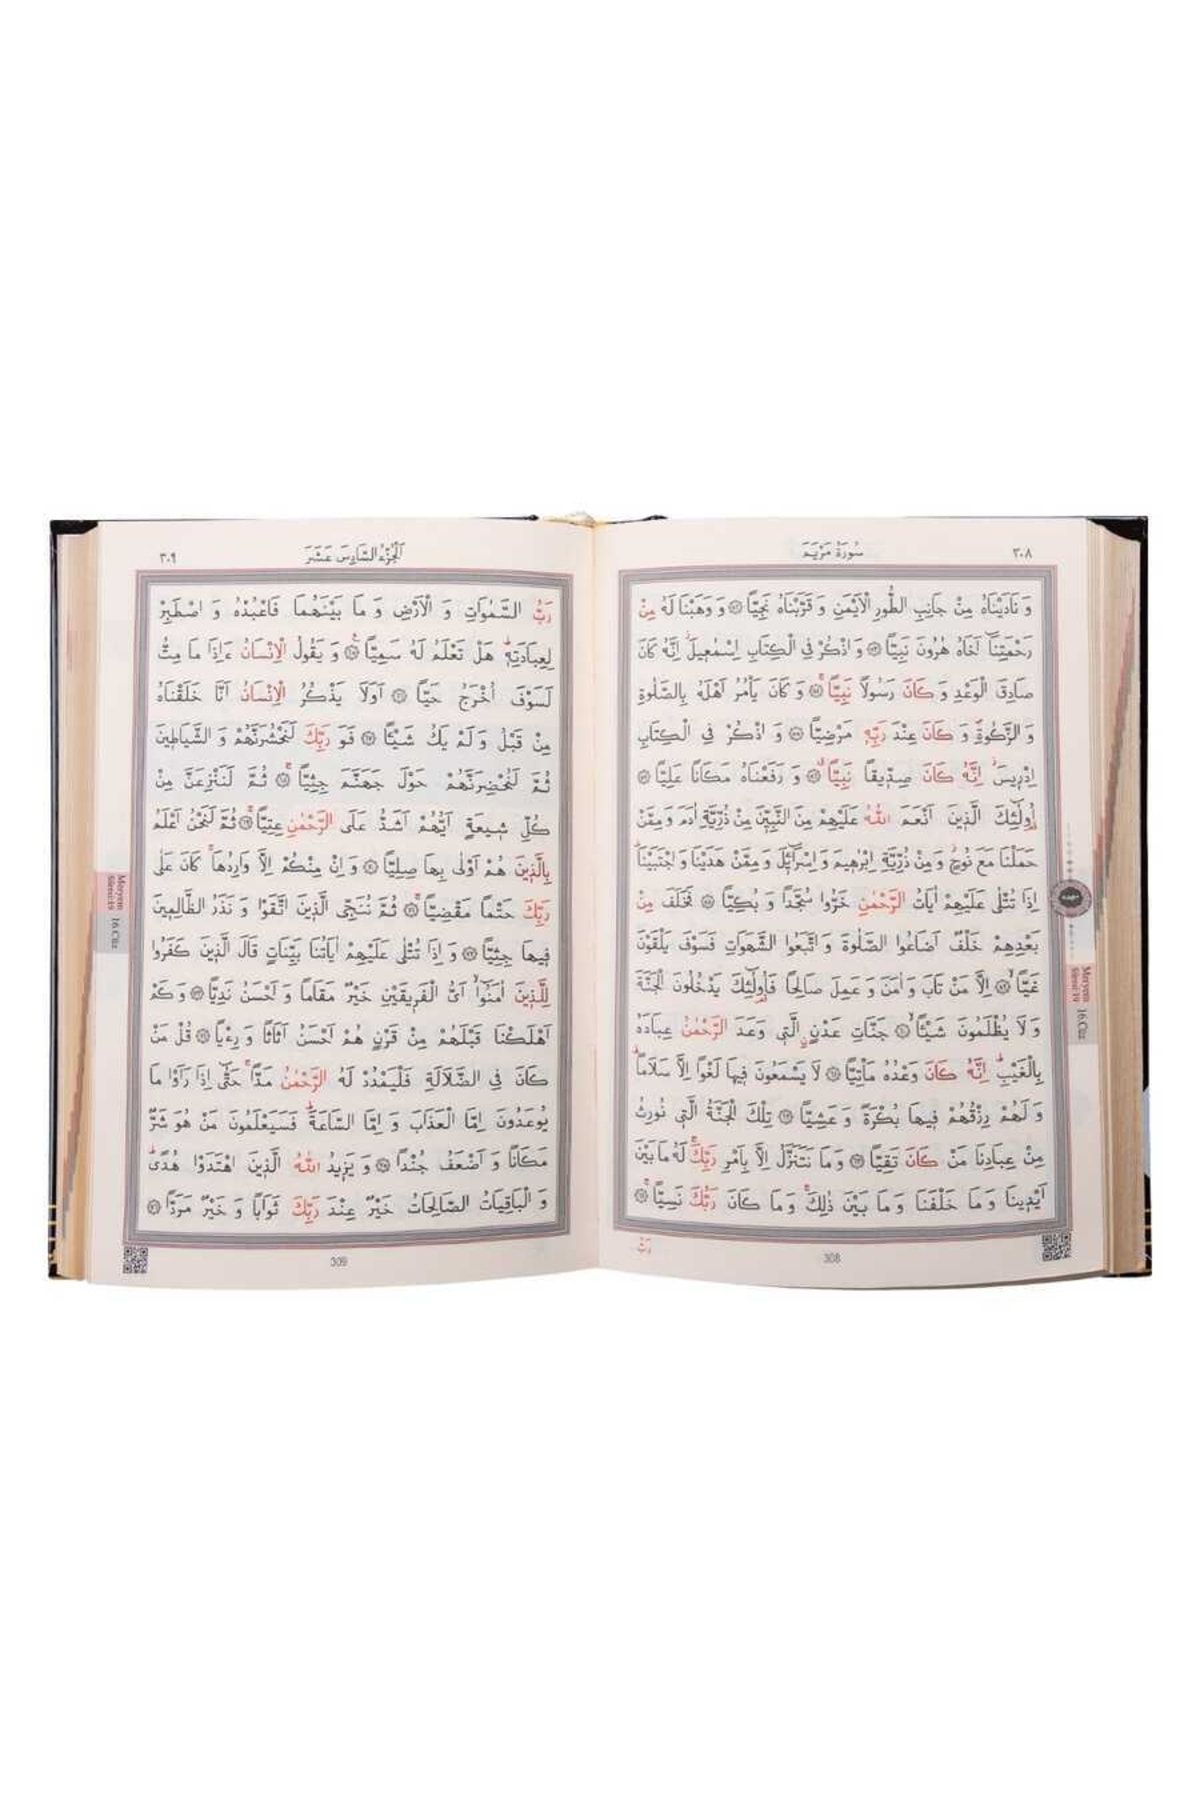 ٣٠٨
سُورَةُ مَرْيَمَ
وَ نَادَيْنَاهُ مِنْ جَانِبِ الطُّورِ الْاَيْمَنِ وَ قَرَّبْنَاهُ نَجِيًّا ﴿٥٢﴾ وَ وَهَبْنَا لَهُ مِنْ
رَحْمَتِنَٓا اَخَاهُ هٰرُونَ نَبِيًّا ﴿٥٣﴾ وَ اذْكُرْ فِي الْكِتَابِ اِسْمٰعٖيلَؗ اِنَّهُ كَانَ
صَادِقَ الْوَعْدِ وَ كَانَ رَسُولًا نَبِيًّاۚ ﴿٥٤﴾ وَ كَانَ يَاْمُرُ اَهْلَهُ بِالصَّلٰوةِ
وَ الزَّكٰوةِؕ وَ كَانَ عِنْدَ رَبِّهٖ مَرْضِيًّا ﴿٥٥﴾ وَ اذْكُرْ فِي الْكِتَابِ
اِدْرٖيسَؗ اِنَّهُ كَانَ صِدّٖيقًا نَبِيًّاۙ ﴿٥٦﴾ وَ رَفَعْنَاهُ مَكَانًا عَلِيًّا ﴿٥٧﴾
اُو۬لٰٓئِكَ الَّذٖينَ اَنْعَمَ اللّٰهُ عَلَيْهِمْ مِنَ النَّبِيّٖنَ مِنْ ذُرِّيَّةِ اٰدَمَ وَ مِمَّنْ
حَمَلْنَا مَعَ نُوحٍؗ وَ مِنْ ذُرِّيَّةِ اِبْرٰهٖيمَ وَ اِسْرَٓائٖلَ وَ مِمَّنْ هَدَيْنَا وَ اجْتَبَيْنَاؕ
اِذَا تُتْلٰى عَلَيْهِمْ اٰيَاتُ الرَّحْمٰنِ خَرُّوا سُجَّدًا وَ بُكِيًّا ﴿٥٨﴾ فَخَلَفَ مِنْ
بَعْدِهِمْ خَلْفٌ اَضَاعُوا الصَّلٰوةَ وَ اتَّبَعُوا الشَّهَوَاتِ فَسَوْفَ يَلْقَوْنَ
غَيًّاۙ ﴿٥٩﴾ اِلَّا مَنْ تَابَ وَ اٰمَنَ وَ عَمِلَ صَالِحًا فَاُو۬لٰٓئِكَ يَدْخُلُونَ الْجَنَّةَ
وَ لَا يُظْلَمُونَ شَيْـًٔاۙ ﴿٦٠﴾ جَنَّاتِ عَدْنٍۨ الَّتٖي وَعَدَ الرَّحْمٰنُ عِبَادَهُ
بِالْغَيْبِؕ اِنَّهُ كَانَ وَعْدُهُ مَاْتِيًّا ﴿٦١﴾ لَا يَسْمَعُونَ فٖيهَا لَغْوًا اِلَّا سَلَامًاؕ
وَ لَهُمْ رِزْقُهُمْ فٖيهَا بُكْرَةً وَ عَشِيًّا ﴿٦٢﴾ تِلْكَ الْجَنَّةُ الَّتٖي نُورِثُ
مِنْ عِبَادِنَا مَنْ كَانَ تَقِيًّا ﴿٦٣﴾ وَ مَا نَتَنَزَّلُ اِلَّا بِاَمْرِ رَبِّكَۚ لَهُ مَا بَيْنَ
اَيْدٖينَا وَ مَا خَلْفَنَا وَ مَا بَيْنَ ذٰلِكَۚ وَ مَا كَانَ رَبُّكَ نَسِيًّاۚ ﴿٦٤﴾
رَبُّ
308
Meryem
Sûresi:19
16.Cüz
اَلْجُزْءُ السَّادِسَ عَشَرَ
٣٠٩
رَبُّ السَّمٰوَاتِ وَ الْاَرْضِ وَ مَا بَيْنَهُمَا فَاعْبُدْهُ وَ اصْطَبِرْ
لِعِبَادَتِهٖؕ هَلْ تَعْلَمُ لَهُ سَمِيًّاۚ ﴿٦٥﴾ وَ يَقُولُ الْاِنْسَانُ ءَاِذَا مَا مِتُّ
لَسَوْفَ اُخْرَجُ حَيًّا ﴿٦٦﴾ اَوَلَا يَذْكُرُ الْاِنْسَانُ اَنَّا خَلَقْنَاهُ
مِنْ قَبْلُ وَ لَمْ يَكُ شَيْـًٔا ﴿٦٧﴾ فَوَ رَبِّكَ لَنَحْشُرَنَّهُمْ وَ الشَّيَاطٖينَ
ثُمَّ لَنُحْضِرَنَّهُمْ حَوْلَ جَهَنَّمَ جِثِيًّاۚ ﴿٦٨﴾ ثُمَّ لَنَنْزِعَنَّ مِنْ
كُلِّ شٖيعَةٍ اَيُّهُمْ اَشَدُّ عَلَى الرَّحْمٰنِ عِتِيًّاۚ ﴿٦٩﴾ ثُمَّ لَنَحْنُ اَعْلَمُ
بِالَّذٖينَ هُمْ اَوْلٰى بِهَا صِلِيًّا ﴿٧٠﴾ وَ اِنْ مِنْكُمْ اِلَّا وَارِدُهَاۚ كَانَ عَلٰى
رَبِّكَ حَتْمًا مَقْضِيًّاۚ ﴿٧١﴾ ثُمَّ نُنَجِّي الَّذٖينَ اتَّقَوْا وَ نَذَرُ الظَّالِمٖينَ
فٖيهَا جِثِيًّا ﴿٧٢﴾ وَ اِذَا تُتْلٰى عَلَيْهِمْ اٰيَاتُنَا بَيِّنَاتٍ قَالَ الَّذٖينَ كَفَرُوا
لِلَّذٖينَ اٰمَنُٓواۙ اَيُّ الْفَرٖيقَيْنِ خَيْرٌ مَقَامًا وَ اَحْسَنُ نَدِيًّا ﴿٧٣﴾ وَ كَمْ
اَهْلَكْنَا قَبْلَهُمْ مِنْ قَرْنٍ هُمْ اَحْسَنُ اَثَاثًا وَ رِءْيًا ﴿٧٤﴾ قُلْ مَنْ
كَانَ فِي الضَّلَالَةِ فَلْيَمْدُدْ لَهُ الرَّحْمٰنُ مَدًّاۚ حَتّٰٓى اِذَا رَاَوْا مَا
يُوعَدُونَ اِمَّا الْعَذَابَ وَ اِمَّا السَّاعَةَؕ فَسَيَعْلَمُونَ مَنْ هُوَ شَرٌّ
مَكَانًا وَ اَضْعَفُ جُنْدًا ﴿٧٥﴾ وَ يَزٖيدُ اللّٰهُ الَّذٖينَ اهْتَدَوْا هُدًىؕ
وَ الْبَاقِيَاتُ الصَّالِحَاتُ خَيْرٌ عِنْدَ رَبِّكَ ثَوَابًا وَ خَيْرٌ مَرَدًّا ﴿٧٦﴾
309
Meryem
Sûresi:19
16.Cüz